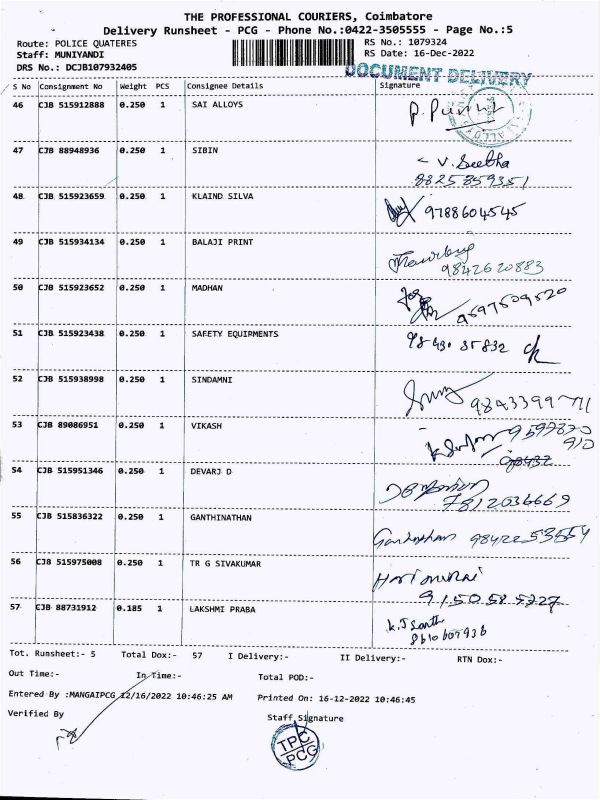 THE PROFESSIONAL COURIERS, Coimbatore
Delivery Runsheet - PCG - Phone No.:0422-3505555 - Page No.:5
Route: POLICE QUATERES
RS No.: 1079324
Staff: MUNIYANDI
RS Date: 16-Dec-2022
DRS No.: DCJB107932405
DOCUMENT DELIVERY
S No Consignment No Weight PCS Consignee Details Signature
46 CJB 515912888 0.250 1 SAI ALLOYS
47 CJB 88948936 0.250 1 SIBIN
V. Seebha
8825859351
48 CJB 515923659 0.250 1 KLAIND SILVA
9788604545
49 CJB 515934134 0.250 1 BALAJI PRINT
9842620883
50 CJB 515923652 0.250 1 MADHAN
9597509520
51 CJB 515923438 0.250 1 SAFETY EQUIRMENTS
52 CJB 515938998 0.250 1 SINDAMNI
53 CJB 89086951 0.250 1 VIKASH
54 CJB 515951346 0.250 1 DEVARJ D
7812036669
55 CJB 515836322 0.250 1 GANTHINATHAN
56 CJB 515975008 0.250 1 TR G SIVAKUMAR
57 CJB 88731912 0.185 1 LAKSHMI PRABA
8610607936
Tot. Runsheet:- 5 Total Dox:- 57 I Delivery:- II Delivery:- RTN Dox:-
Out Time:- In Time:- Total POD:-
Entered By :MANGAIPCG 12/16/2022 10:46:25 AM Printed On: 16-12-2022 10:46:45
Verified By Staff Signature
TPC
PCG